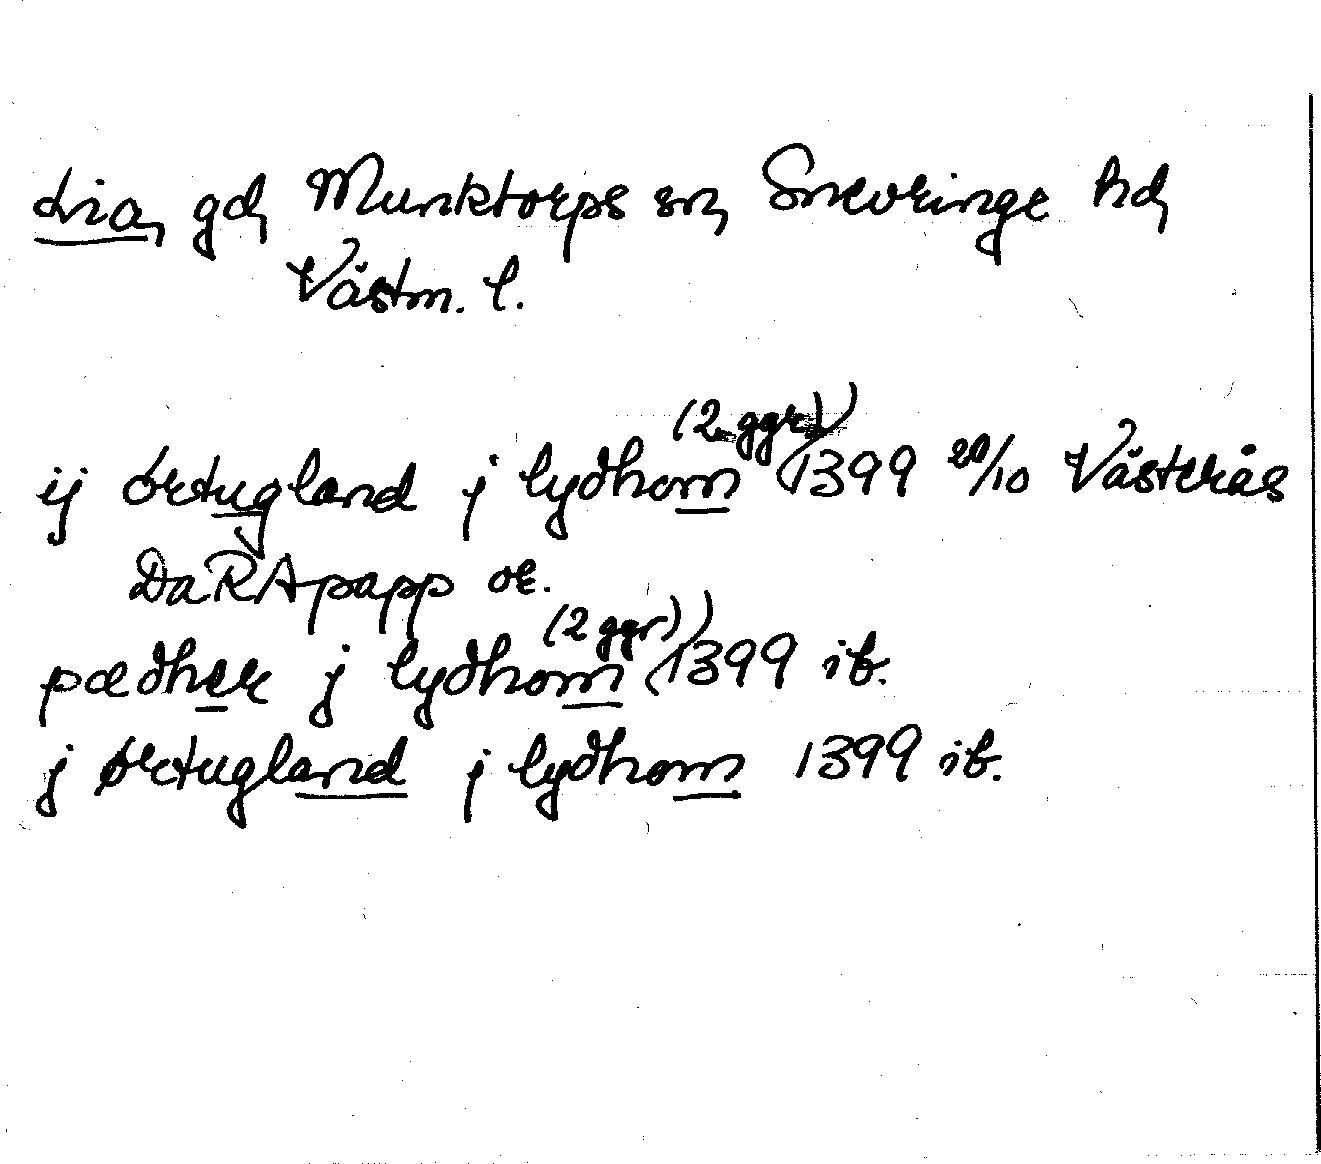 Lia, gd, Munktorps sn, Snevringe hd,
Västm. l.
ij ørtugland j lydhom (2 ggr) (1399 20/10 Västerås
Da RA papp or.)
pædher j lydhom (2 ggr) (1399 ib.)
j ørtugland j lydhom 1399 ib.